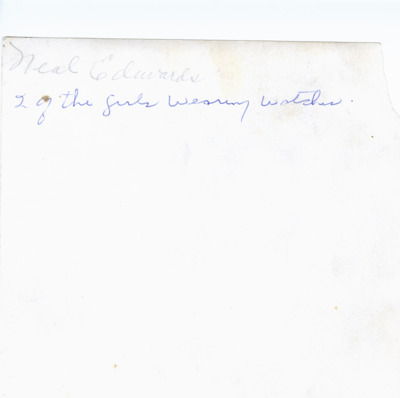 Neal Edwards
2 of the girls wearing watches.